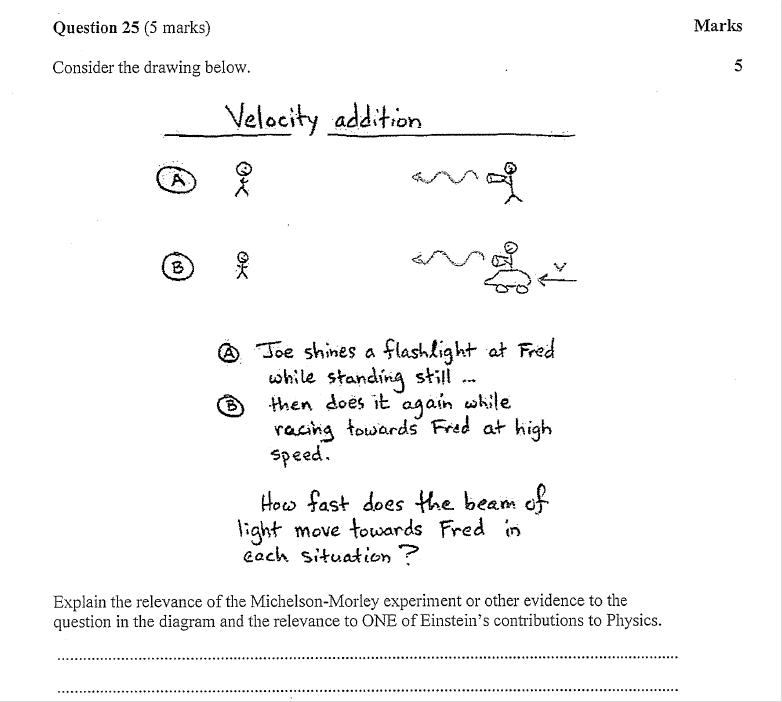 Question 25 (5 marks)
Marks
Consider the drawing below.
5
Velocity addition
A
B
V
A Joe shines a flashlight at Fred
while standing still ...
B then does it again while
racing towards Fred at high
speed.
How fast does the beam of
light move towards Fred in
each situation?
Explain the relevance of the Michelson-Morley experiment or other evidence to the
question in the diagram and the relevance to ONE of Einstein's contributions to Physics.